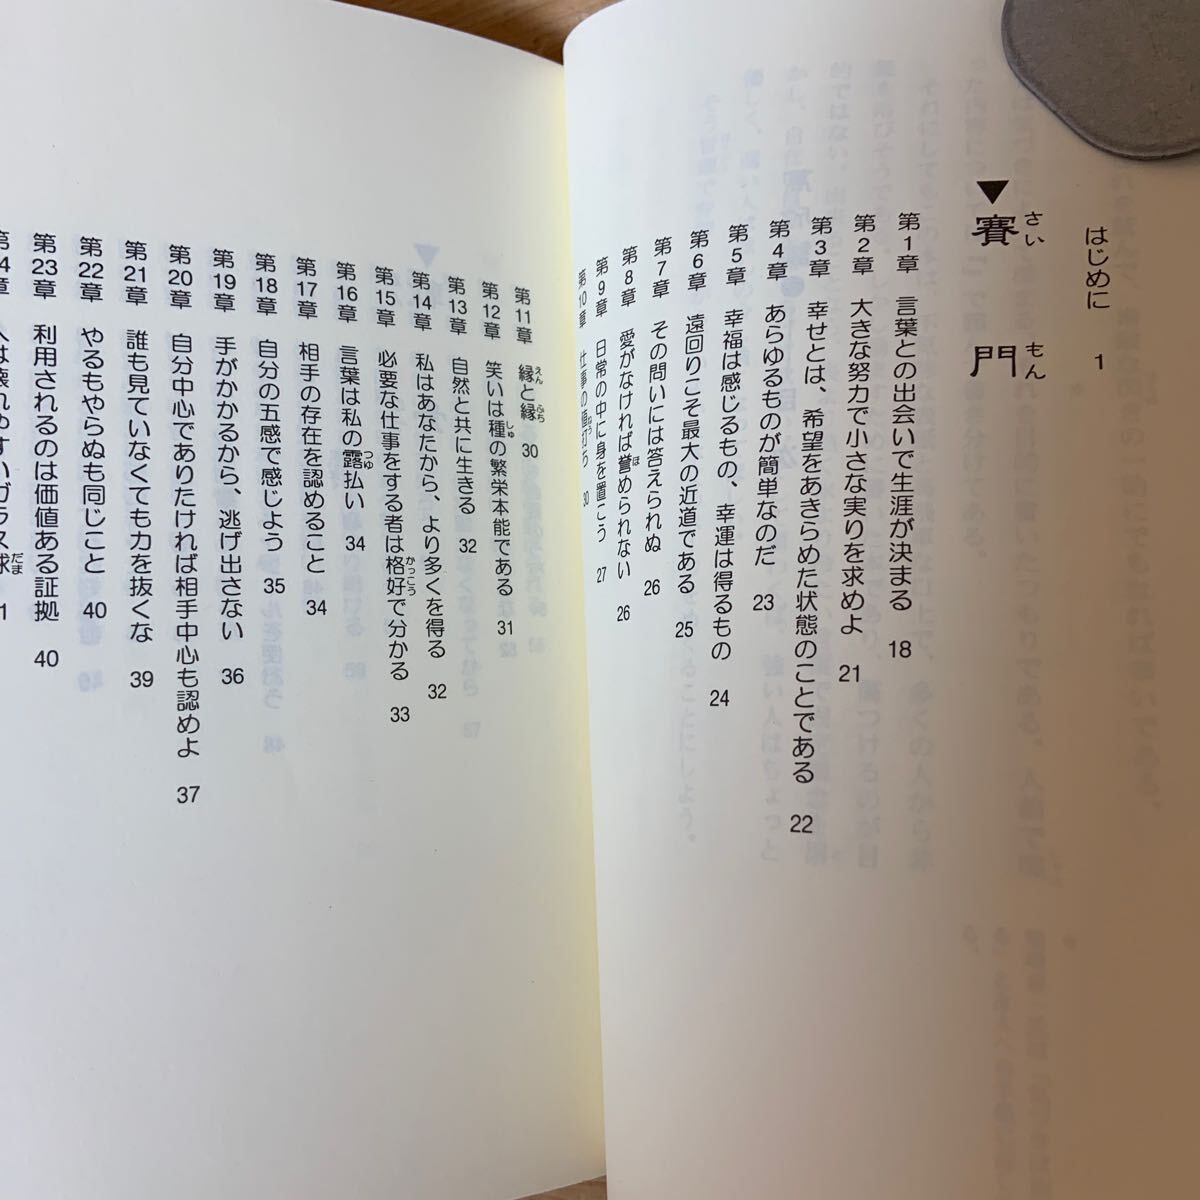 はじめに 1
▼賽門
さいもん
第1章 言葉との出会いで生涯が決まる 18
第2章 大きな努力で小さな実りを求めよ 21
第3章 幸せとは、希望をあきらめた状態のことである 22
第4章 あらゆるものが簡単なのだ 23
第5章 幸福は感じるもの、幸運は得るもの 24
第6章 遠回りこそ最大の近道である 25
第7章 その問いには答えられぬ 26
第8章 愛がなければ誉められない 26
ほ
第9章 日常の中に身を置こう 27
第10章 仕事の値打ち 30
第11章 縁と縁 30
えん ふち
第12章 笑いは種の繁栄本能である 31
しゅ
第13章 自然と共に生きる 32
第14章 私はあなたから、より多くを得る 32
第15章 必要な仕事をする者は格好で分かる 33
かっこう
第16章 言葉は私の露払い 34
つゆ
第17章 相手の存在を認めること 34
第18章 自分の五感で感じよう 35
第19章 手がかかるから、逃げ出さない 36
第20章 自分中心でありたければ相手中心も認めよ 37
第21章 誰も見ていなくても力を抜くな 39
第22章 やるもやらぬも同じこと 40
第23章 利用されるのは価値ある証拠 40
人は壊れやすいガラス球
だま